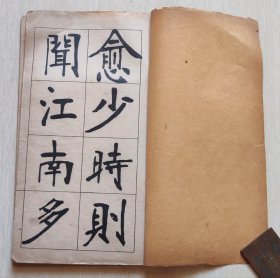 愈少時則
聞江南多